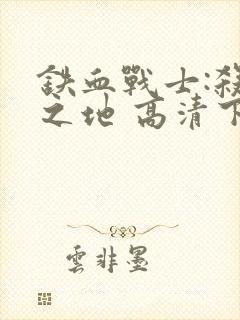 鉄血戰士:殺
之地 高清下
雲非墨